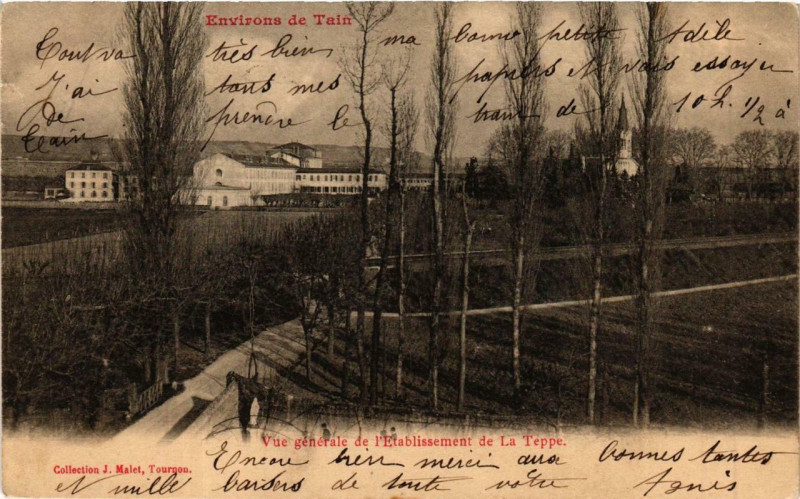 Environs de Tain
Tout va très bien ma bonne petite Adèle
J'ai tous mes papiers et vais essayer
de prendre le train de 10 h. 1/2 à
Tain
Vue générale de l'Etablissement de La Teppe.
Collection J. Malet, Tournon.
Encore bien merci aux bonnes tantes
et mille baisers de toute votre Agnès